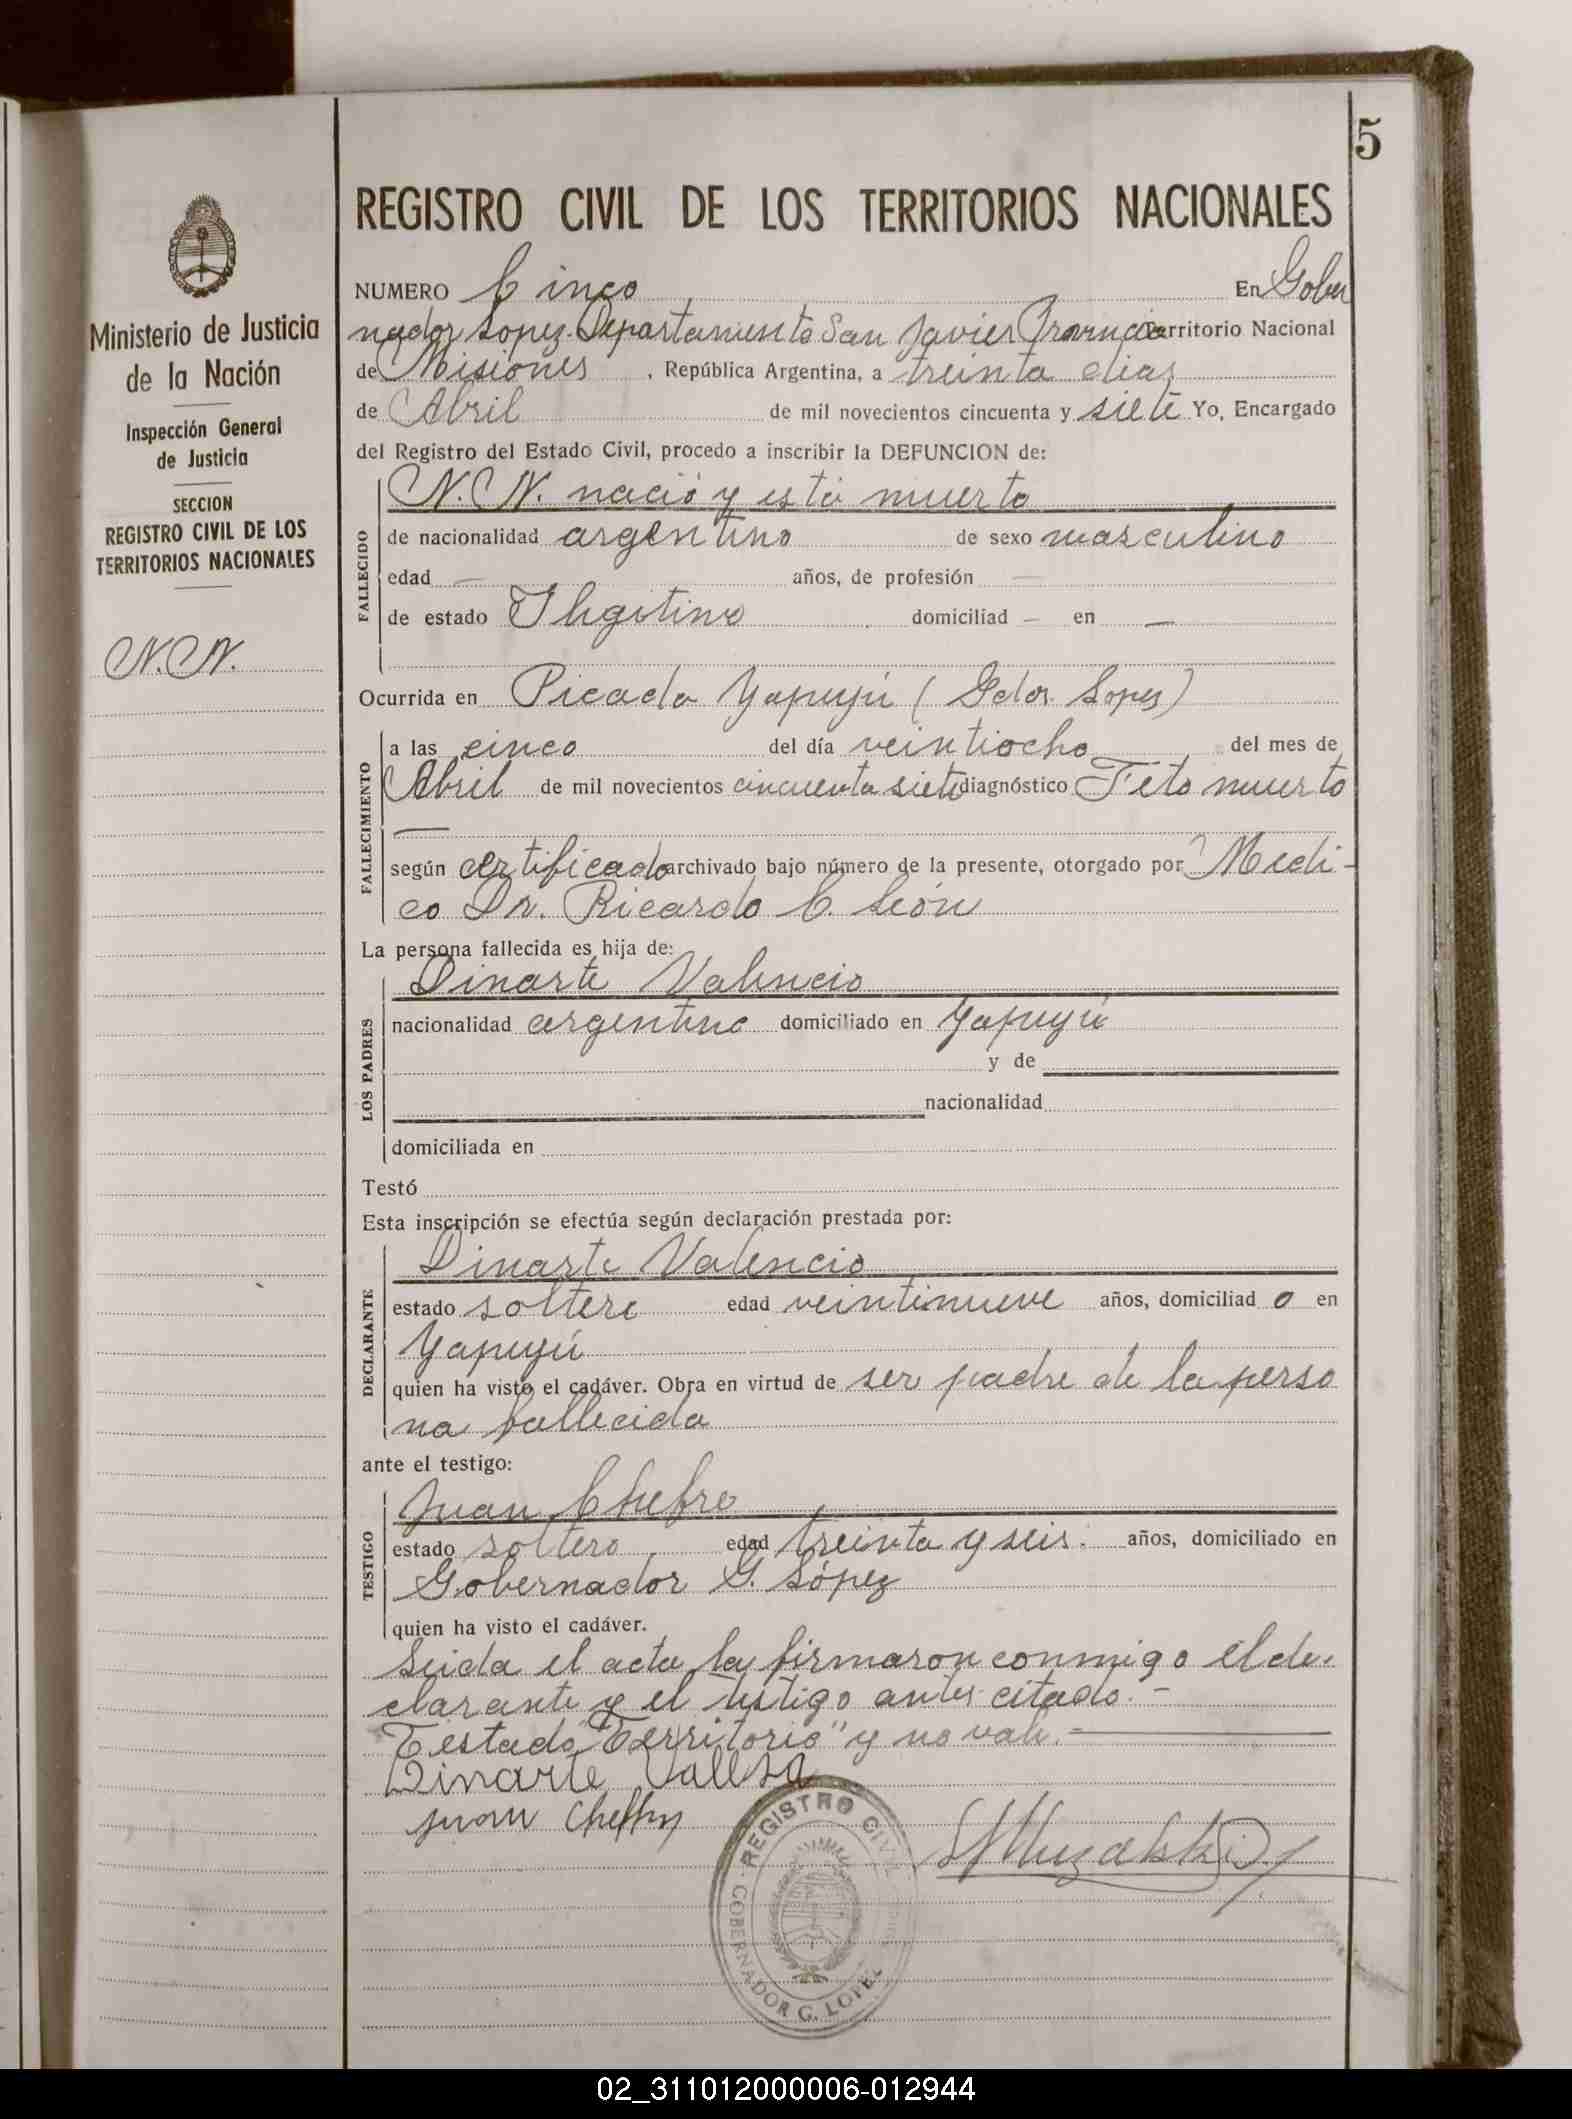 5
REGISTRO CIVIL DE LOS TERRITORIOS NACIONALES
Ministerio de Justicia
de la Nación
Inspección General
de Justicia
SECCION
REGISTRO CIVIL DE LOS
TERRITORIOS NACIONALES
N.N.
NUMERO Cinco En Gober
nador Lopez. Departamento San Javier Provincia Territorio Nacional
de Misiones , República Argentina, a treinta dias
de Abril de mil novecientos cincuenta y siete Yo, Encargado
del Registro del Estado Civil, procedo a inscribir la DEFUNCION de:
FALLECIDO
N.N. nació y está muerto
de nacionalidad argentino de sexo masculino
edad — años, de profesión —
de estado Ilegitimo domiciliad — en —
Ocurrida en Picada Yapeyú (Gdor. Lopez)
FALLECIMIENTO
a las cinco del día veintiocho del mes de
Abril de mil novecientos cincuenta siete diagnóstico Feto muerto
según certificado archivado bajo número de la presente, otorgado por Medi-
co Dr. Ricardo C. León
La persona fallecida es hija de:
LOS PADRES
Dinarte Valencio
nacionalidad argentino domiciliado en Yapeyú
y de
nacionalidad
domiciliada en
Testó
Esta inscripción se efectúa según declaración prestada por:
DECLARANTE
Dinarte Valencio
estado soltero edad veintinueve años, domiciliad o en
Yapeyú
quien ha visto el cadáver. Obra en virtud de ser padre de la perso
na fallecida
ante el testigo:
TESTIGO
Juan
estado soltero edad treinta y seis. años, domiciliado en
Gobernador G. López
quien ha visto el cadáver.
Leida el acta la firmaron conmigo el de-
clarante y el testigo antes citado.-
Testado "Territorio" y no vale.
Dinarte
Juan
REGISTRO CIVIL
GOBERNADOR G. LOPEZ
02_311012000006-012944